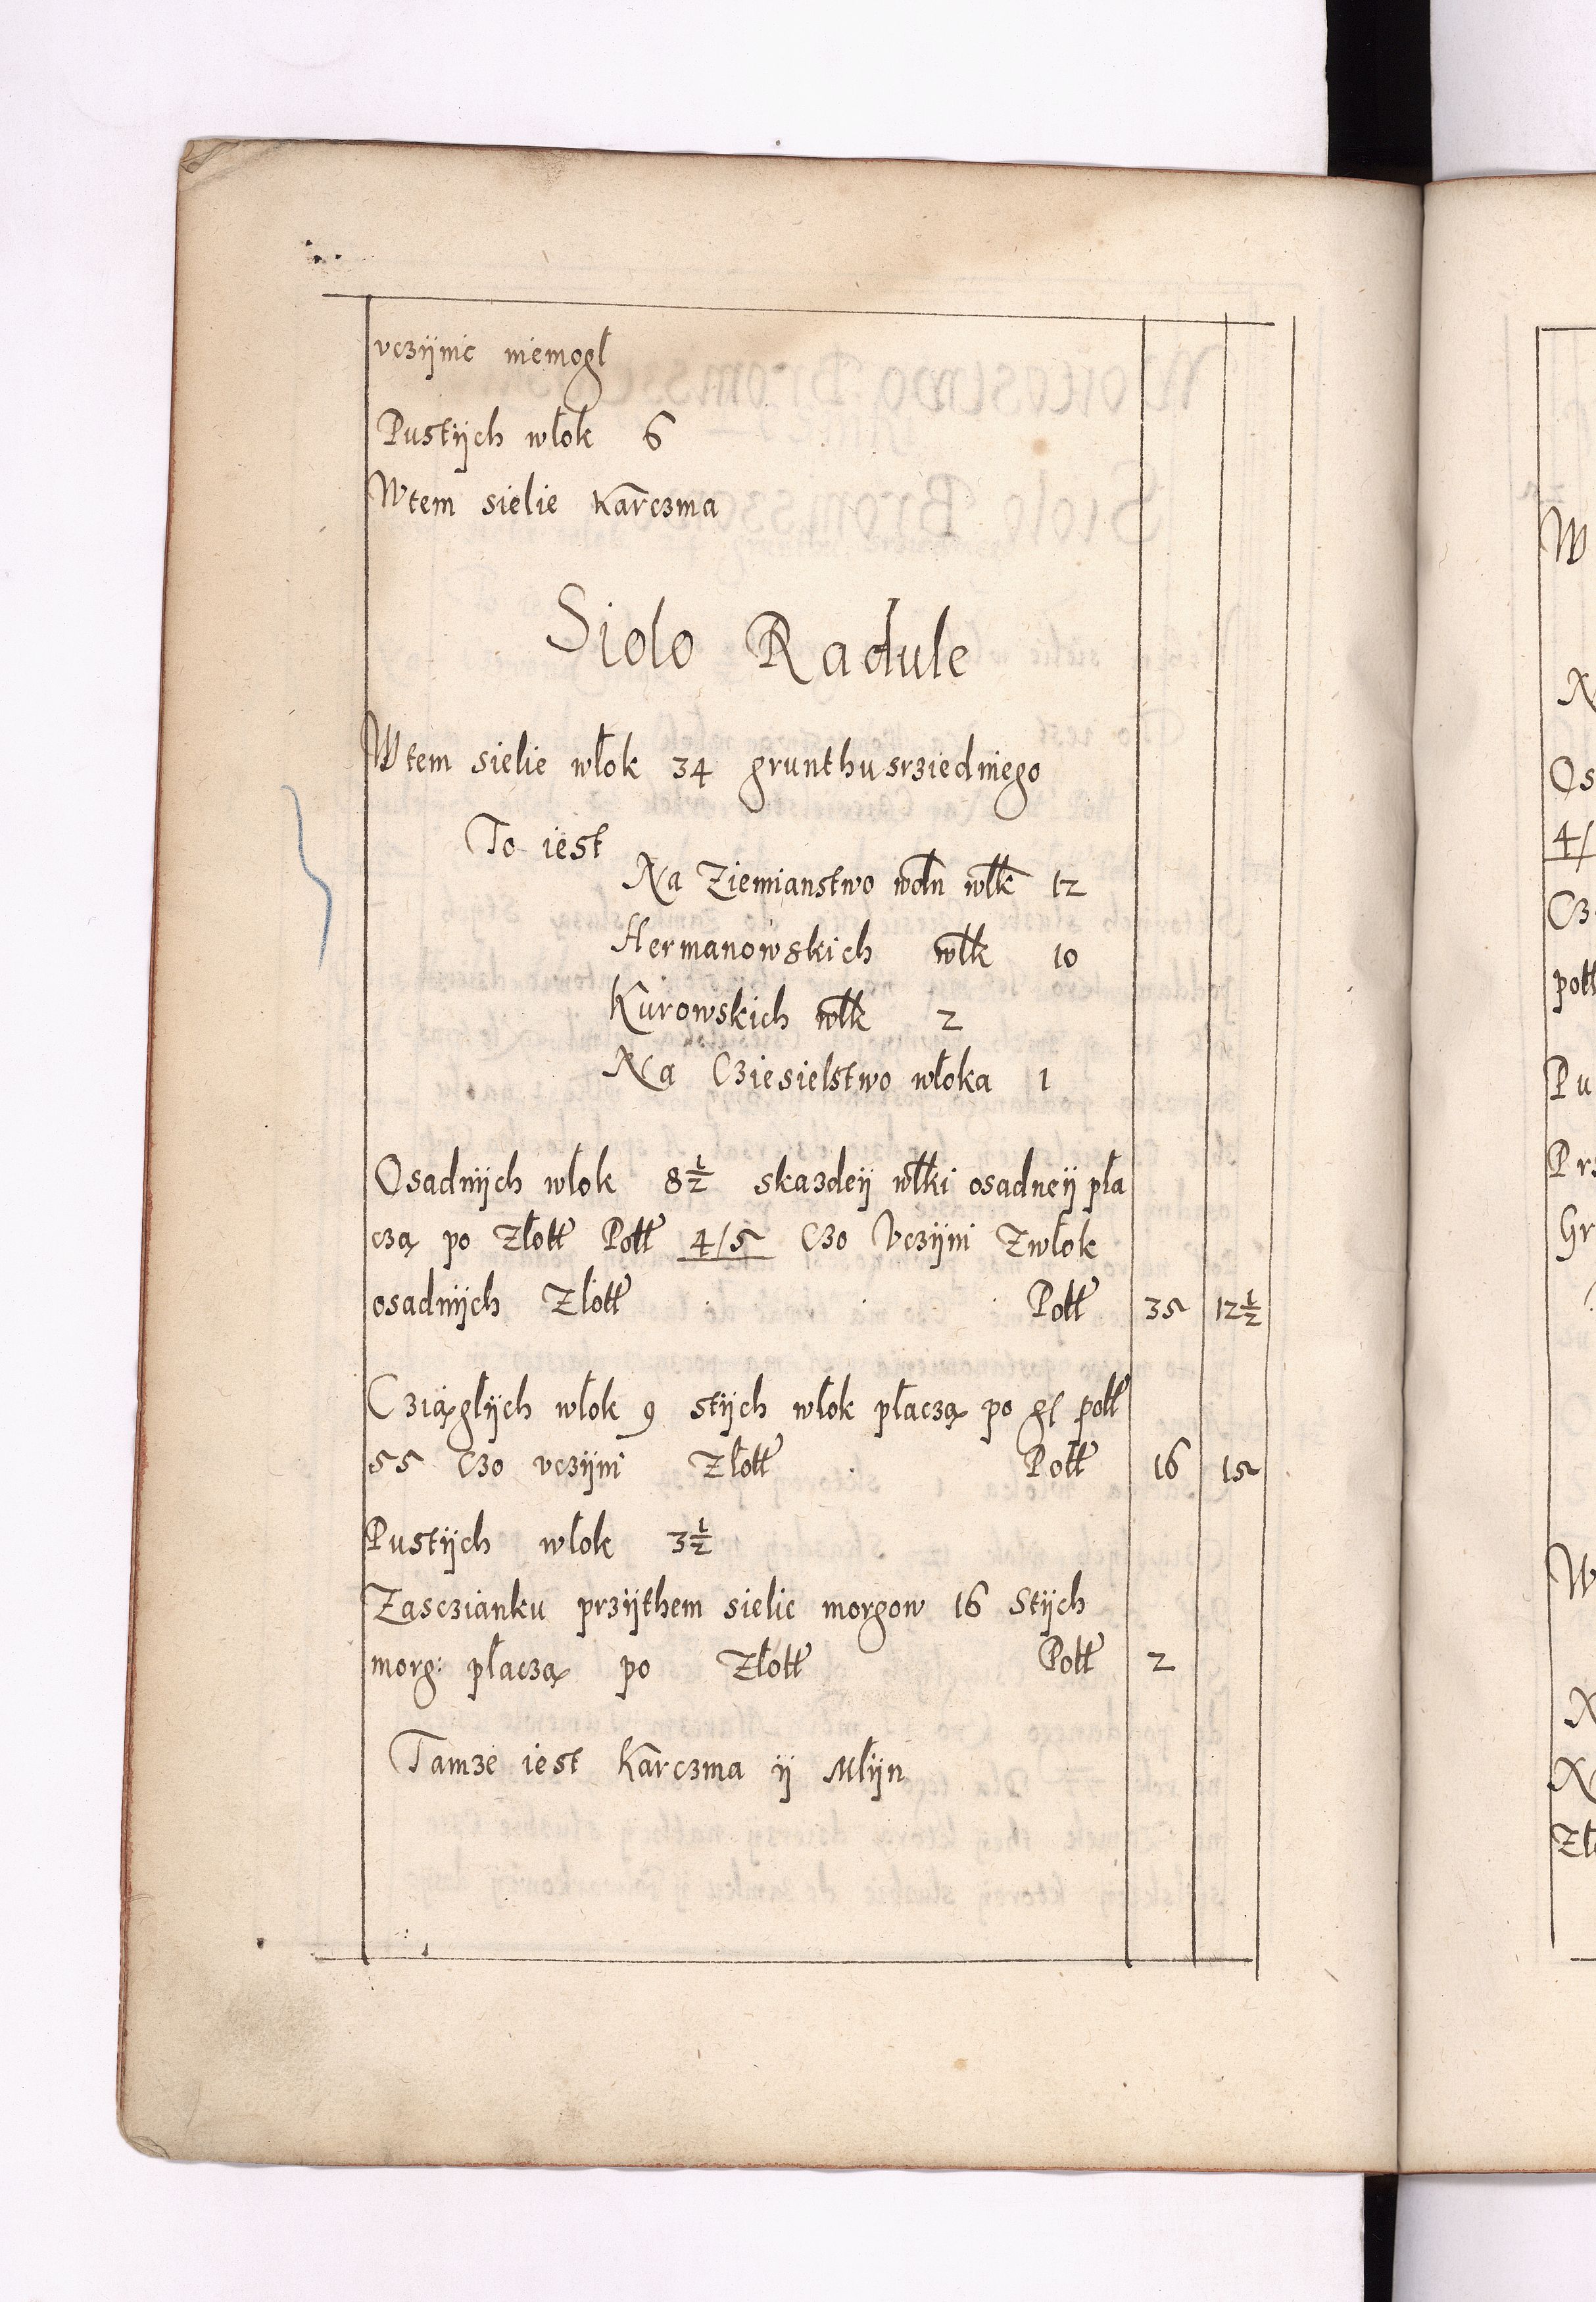 vczÿnic niemogł
Pustÿch włok 6
Wtem sielie Karczma
Siolo Radule
Wtem sielie włok 34 grunthu srziedniego
To iest
Na Ziemianstwo woln włk 12
Hermanowskich włk 10
Kurowskich włk 2
Na Cziesielstwo włoka 1
Osadnÿch włok 8½ skazdeÿ włki osadneÿ pła
czą po Złott Poll 4/5 Czo Vczÿni Zwłok
osadnÿch Złott Poll 35 12½
Cziągłÿch włok 9 stÿch włok płaczą po gl poll
55 Czo vczÿni Złott Poll 16 15
Pustÿch włok 3½
Zasczianku przÿthem sielie morgow 16 Stÿch
morg: płaczą po Złott Poll 2
Tamze iest Karczma ÿ Młÿn
W
N
Os
4/
Cz
poll
Pu
Prz
Gr
W
N
N
Zł